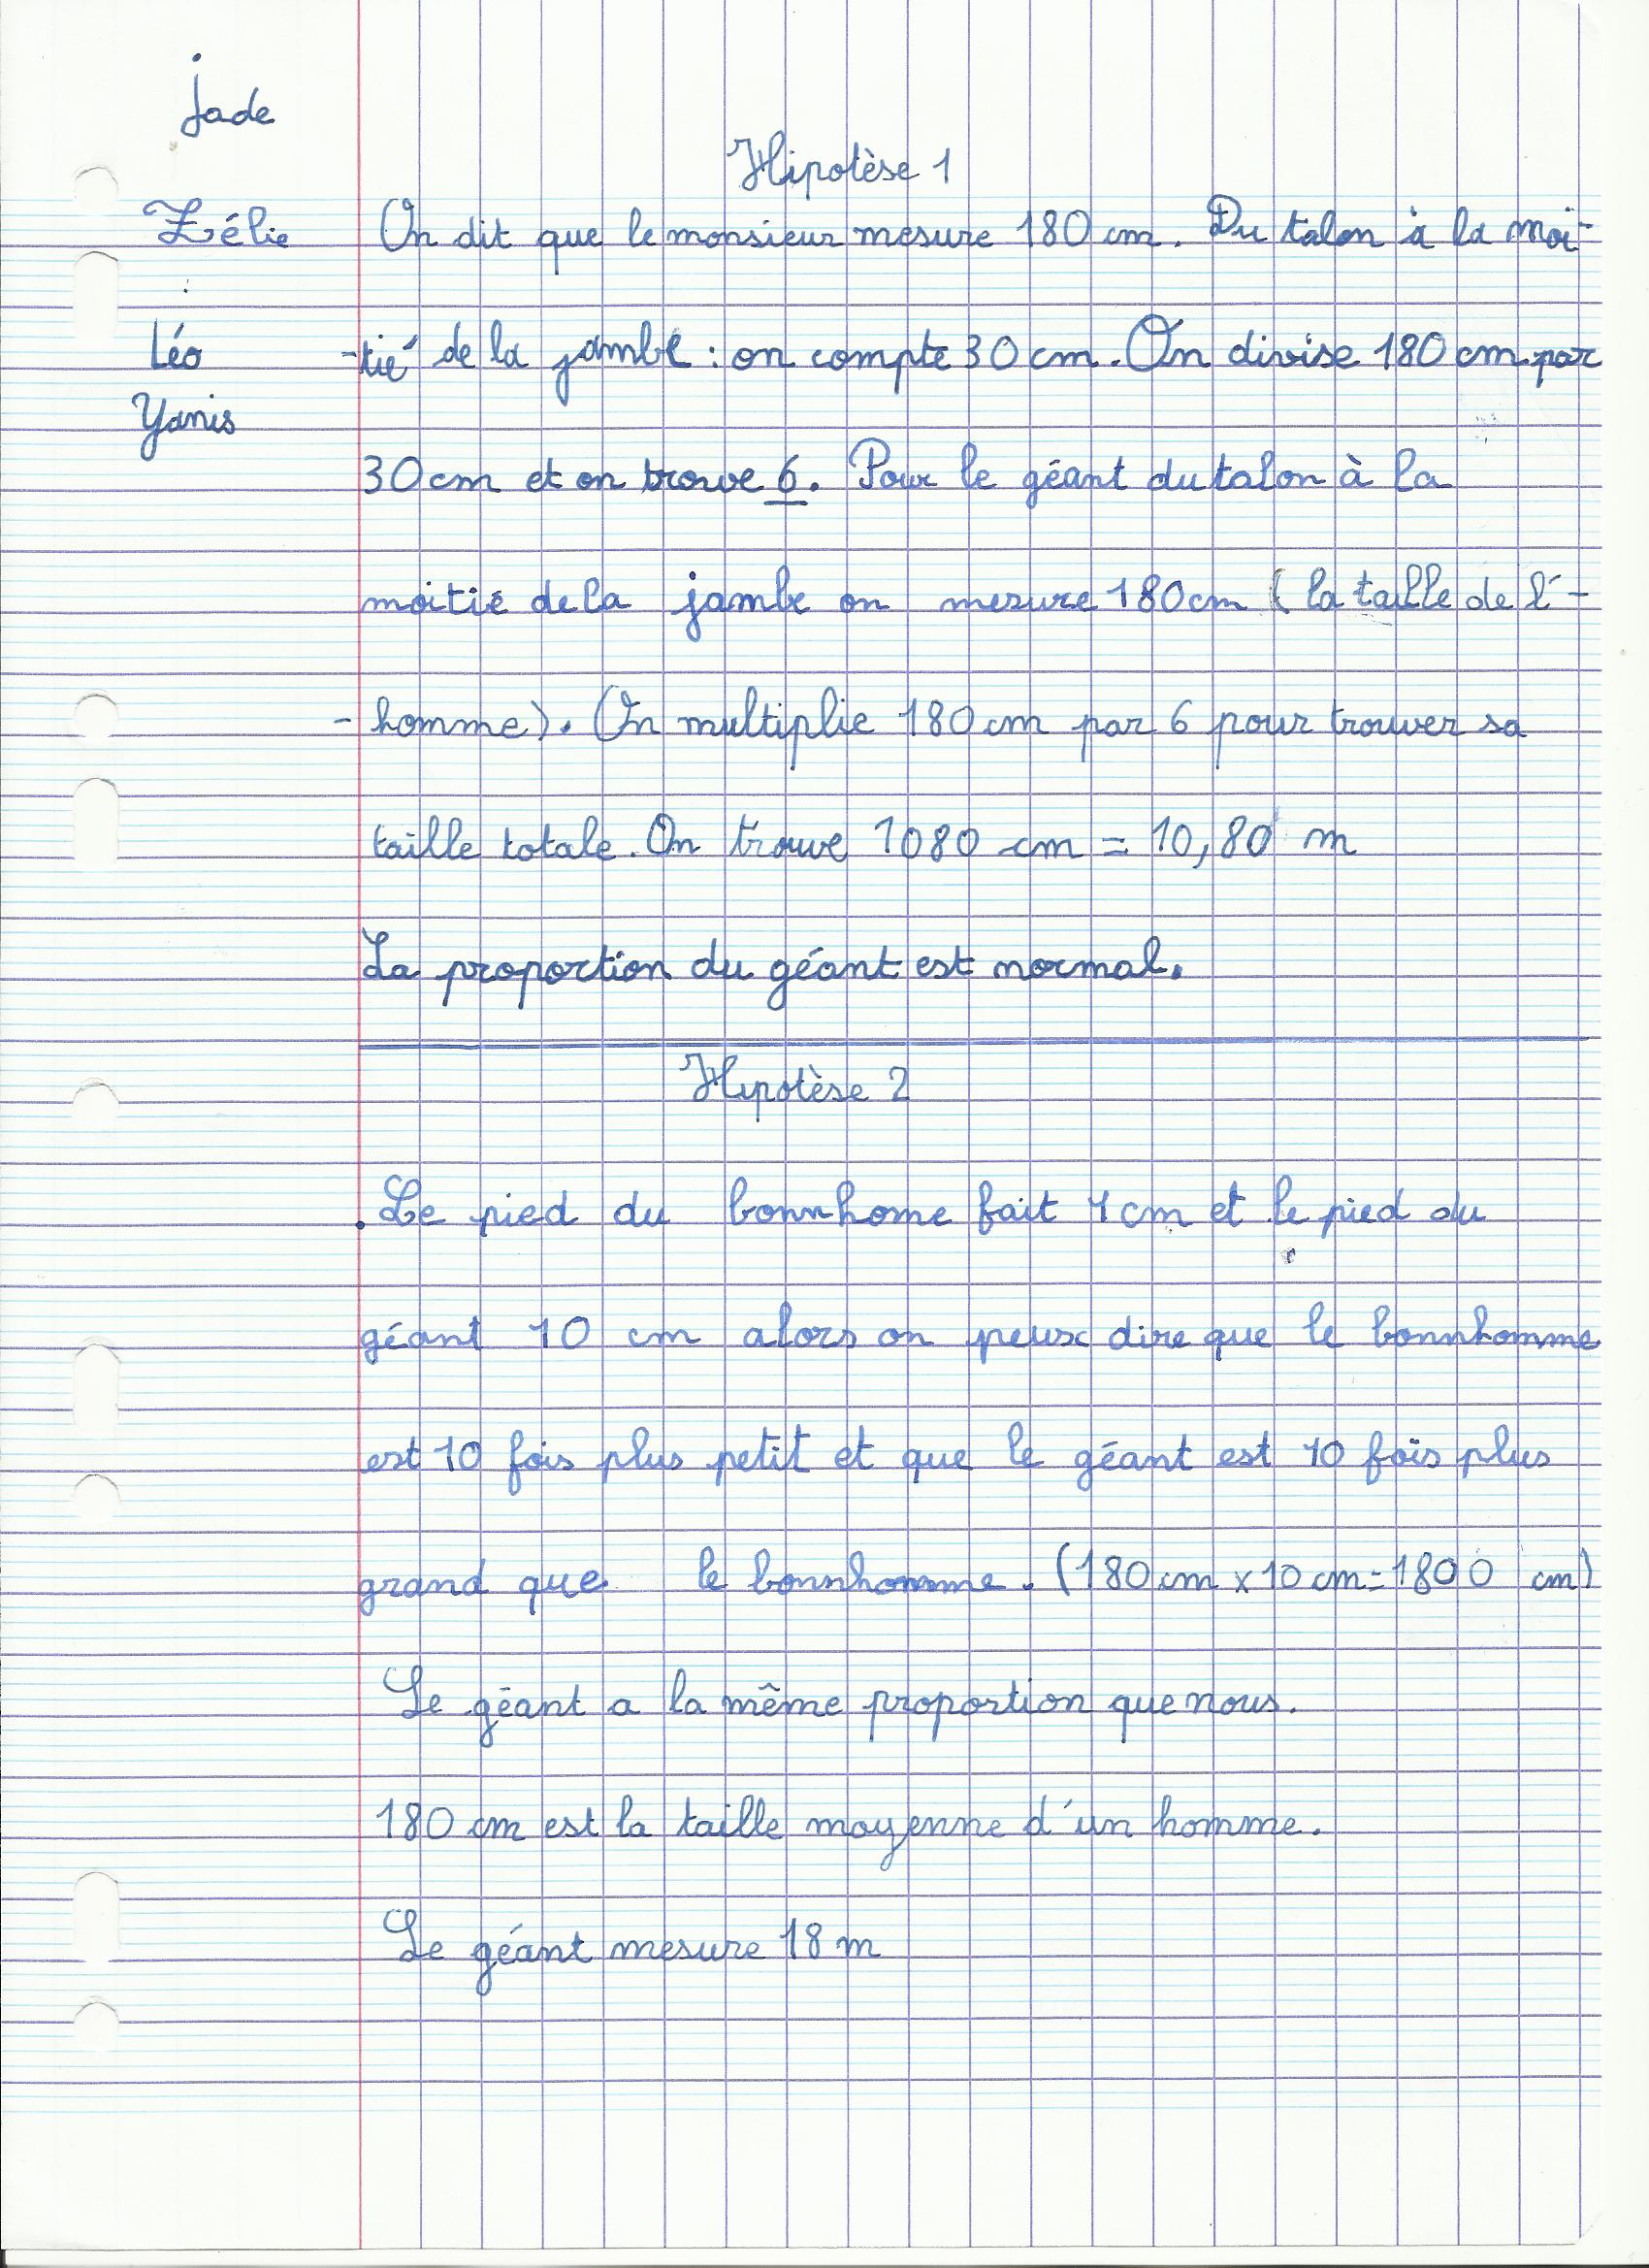 Jade
Hipotèse 1
Zélie On dit que le monsieur mesure 180 cm. Du talon à la moi-
Léo -tié de la jambe : on compte 30 cm. On divise 180 cm par
Yanis
30 cm et on trouve 6. Pour le géant du talon à la
moitié de la jambe on mesure 180 cm (la taille de l'-
- homme). On multiplie 180 cm par 6 pour trouver sa
taille totale. On trouve 1080 cm = 10,80 m
La proportion du géant est normal.
Hipotèse 2
. Le pied du bonnhome fait 1 cm et le pied du
géant 10 cm alors on peux dire que le bonnhomme
est 10 fois plus petit et que le géant est 10 fois plus
grand que le bonnhomme. (180 cm x 10 cm = 1800 cm)
Le géant a la même proportion que nous.
180 cm est la taille moyenne d'un homme.
Le géant mesure 18 m